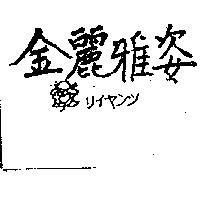 金麗雅姿
リイヤンツ